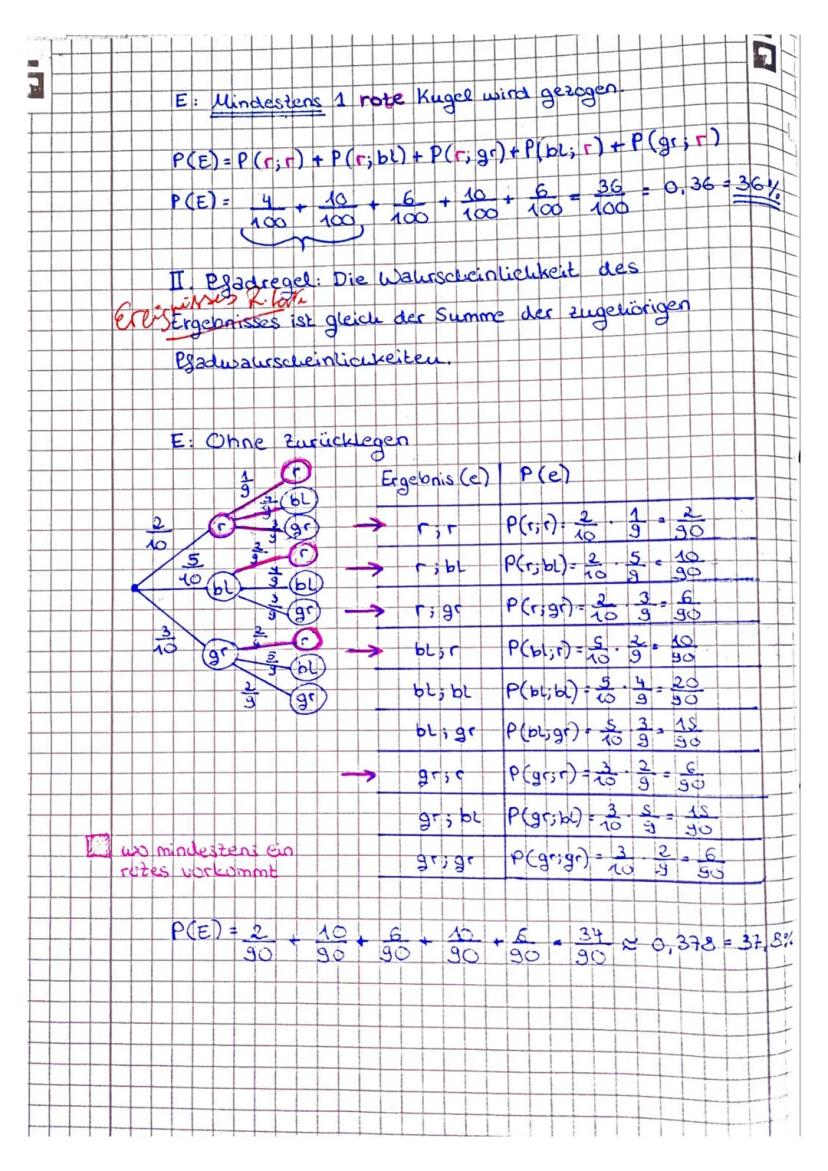 E: Mindestens 1 rote Kugel wird gezogen.
P(E) = P(r;r) + P(r;bl) + P(r;gr) + P(bl;r) + P(gr;r)
P(E) = 4/100 + 10/100 + 6/100 + 10/100 + 6/100 = 36/100 = 0,36 = 36%
II. Pfadregel: Die Wahrscheinlichkeit des
Ereignisses
Ergebnisses ist gleich der Summe der zugehörigen
Pfadwahrscheinlichkeiten.
E: Ohne Zurücklegen
2/10 r 1/9 r
5/9 bl
3/9 gr
5/10 bl 2/9 r
4/9 bl
3/9 gr
3/10 gr 2/9 r
5/9 bl
2/9 gr
Ergebnis (e) | P(e)
→ r;r | P(r;r) = 2/10 · 1/9 = 2/90
→ r;bl | P(r;bl) = 2/10 · 5/9 = 10/90
→ r;gr | P(r;gr) = 2/10 · 3/9 = 6/90
→ bl;r | P(bl;r) = 5/10 · 2/9 = 10/90
bl;bl | P(bl;bl) = 5/10 · 4/9 = 20/90
bl;gr | P(bl;gr) = 5/10 · 3/9 = 15/90
→ gr;r | P(gr;r) = 3/10 · 2/9 = 6/90
gr;bl | P(gr;bl) = 3/10 · 5/9 = 15/90
gr;gr | P(gr;gr) = 3/10 · 2/9 = 6/90
wo mindestens ein
rotes vorkommt
P(E) = 2/90 + 10/90 + 6/90 + 10/90 + 6/90 = 34/90 ≈ 0,378 = 37,8%